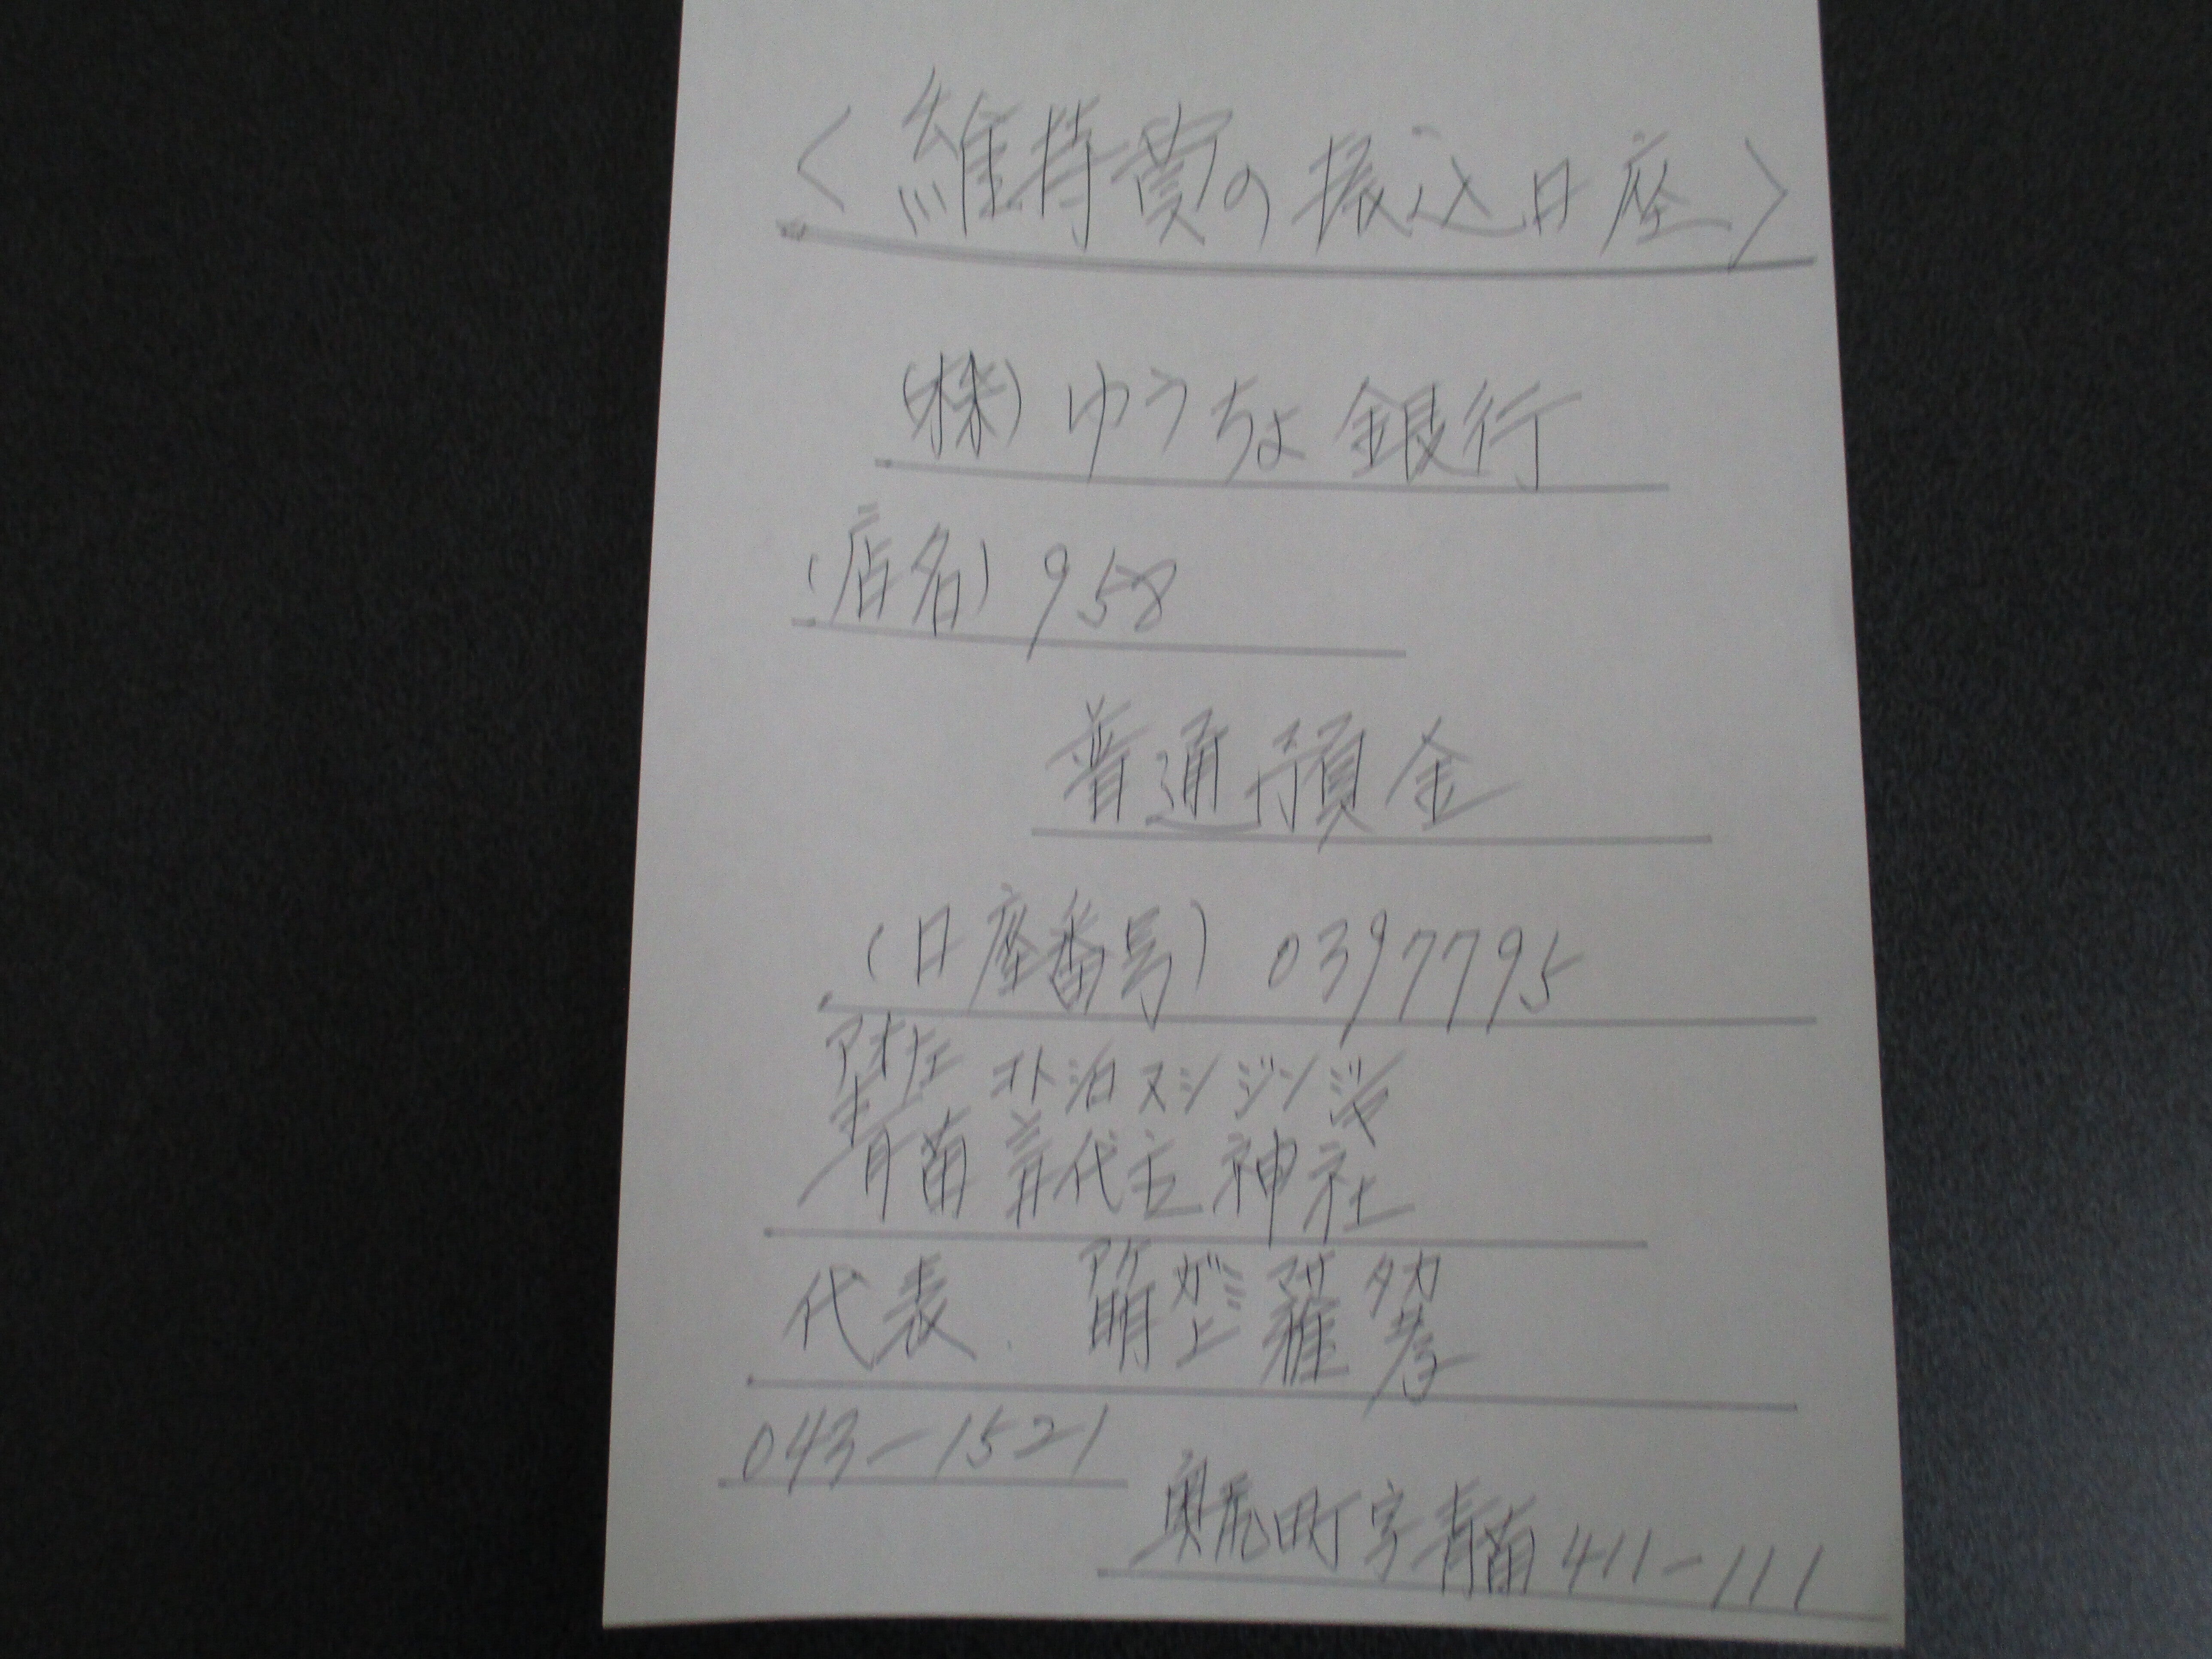 〈維持費の振込口座〉
(株)ゆうちょ銀行
(店名) 958
普通預金
(口座番号) 0397795
アオナエ コトシロヌシジンジャ
青苗言代主神社
アケガミ マサタカ
代表 明上雅孝
043-1521
奥尻町字青苗411-111